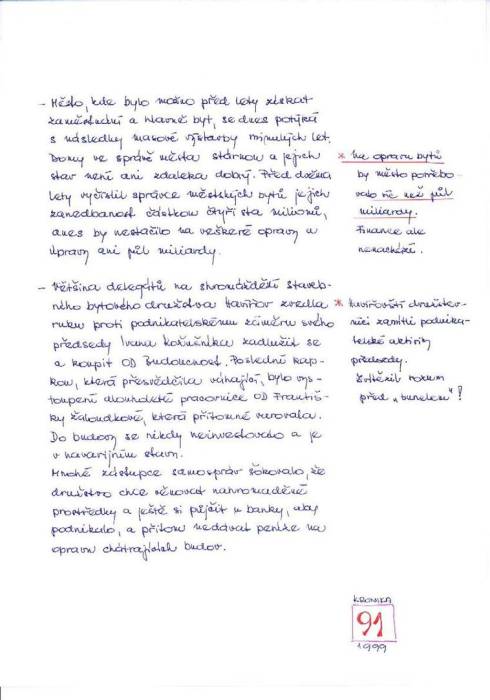 - Město, kde bylo možno před lety získat
zaměstnání a hlavně byt, se dnes potýká
s následky masové výstavby minulých let.
Domy ve správě města stárnou a jejich
stav není ani zdaleka dobrý. Před dvěma
lety vyčíslil správce městských bytů jejich
zanedbanost částkou čtyři sta milionů,
dnes by nestačilo na veškeré opravy a
úpravy ani půl miliardy.
* Na opravu bytů
by město potřebo-
valo víc než půl
miliardy.
Finance ale
nenachází.
- Většina delegátů na shromáždění staveb-
ního bytového družstva Havířov zvedla
ruku proti podnikatelskému záměru svého
předsedy Ivana zadlužit se
a koupit OD Budoucnost. Poslední kap-
kou, která přesvědčila váhající, bylo vys-
toupení dlouholeté pracovnice OD Františ-
ky Žaloudkové, která přítomné varovala.
Do budovy se nikdy neinvestovalo a je
v havarijním stavu.
Mnohé zástupce samospráv šokovalo, že
družstvo chce věnovat nahromaděné
prostředky a ještě si půjčit u banky, aby
podnikalo, a přitom nedávat peníze na
opravu chátrajících budov.
* Havířovští družstev-
níci zamítli podnika-
telské aktivity
předsedy.
Zvítězil rozum
před „tunelem"!
KRONIKA
91
1999